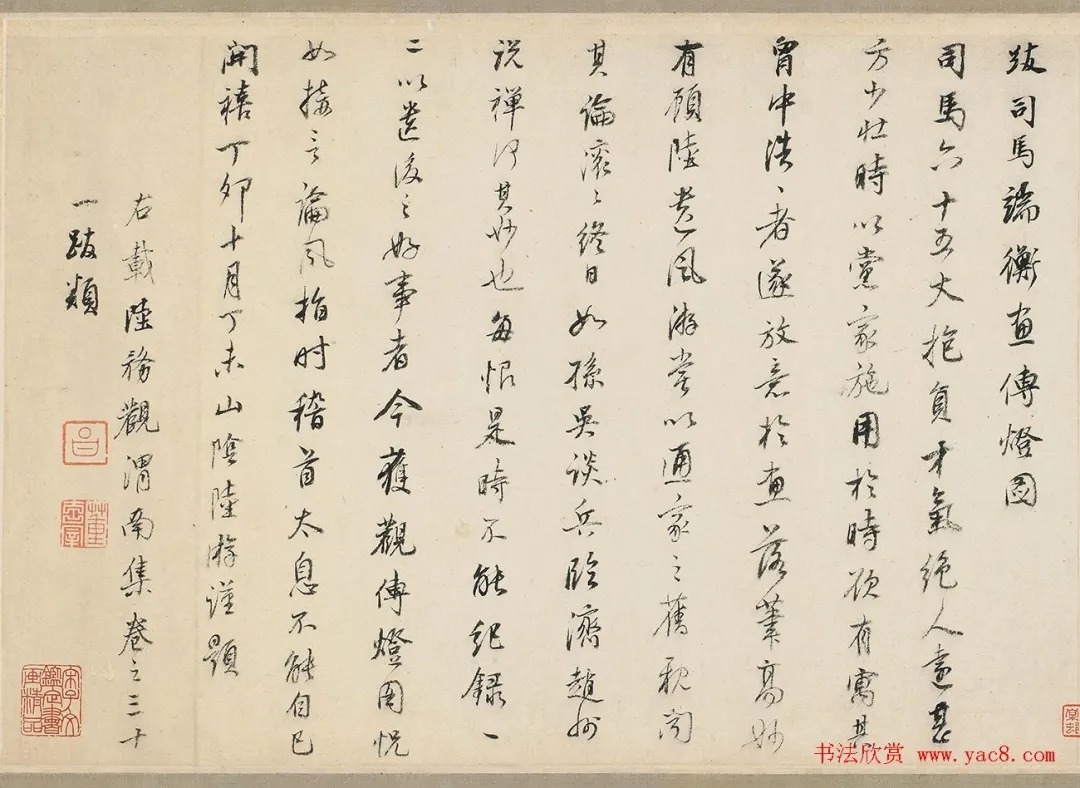 跋司馬端衡畫傳燈圖
司馬六十五丈抱負才氣絕人遠甚
方少壯時以黨家施用於時欲有寓其
胷中浩〻者遂放意於畫落筆高妙
有顧陸遺風游嘗以通家之舊親聞
其論滾〻終日如孫吳談兵臨濟趙州
說禪何其妙也每恨是時不能紀錄一
二以遺後之好事者今獲觀傳燈圖怳
如接言論風指時稽首太息不能自已
開禧丁卯十月丁未山陰陸游謹題
右載陸務觀渭南集卷之三十
一跋類
书法欣赏 www.yac8.com